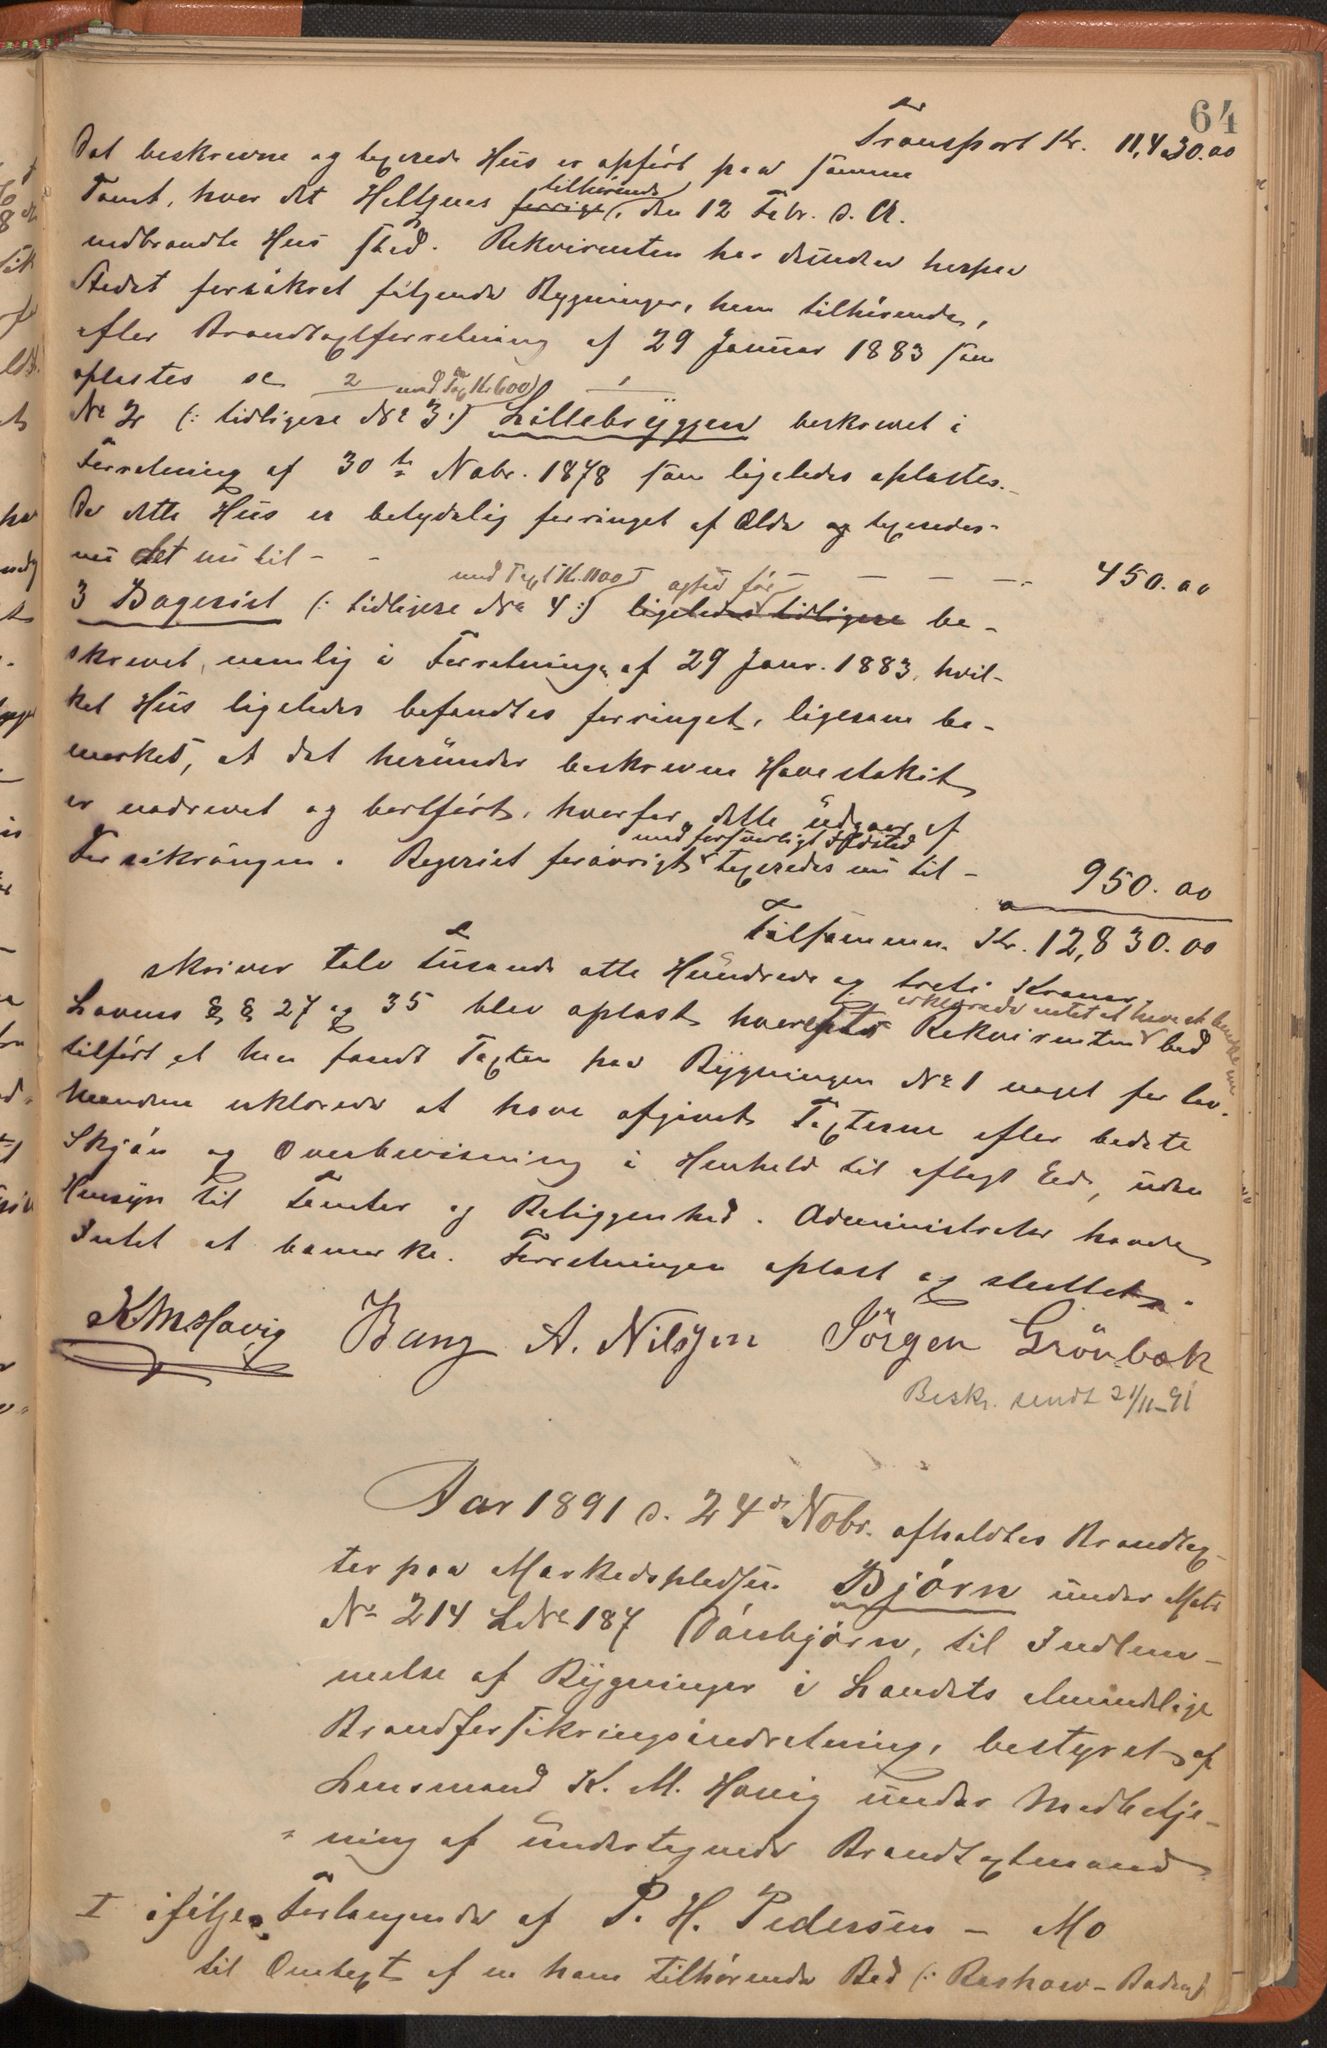 64
Transport Kr. 11,430.00
Det beskrevne og taxerede Hus er opført paa samme
Tomt, hvor det Heltzens forrige tilhørende, den 12 Febr. d. A.
nedbrændte Hus stod. Rekvirenten har desuden herpaa
Stedet forsikret følgende Bygninger, ham tilhørende,
efter Brandtaxtforretning af 29 Januar 1883 som
oplæstes
2 med Tax Kr 600)
No 2 (: tidligere No 3 :) Lillebryggen beskrevet i
Forretning af 30te Novbr. 1878 som ligeledes oplæstes.
Da dette Hus er betydelig forringet af Ælde og taxeredes
nu det nu til - - - - - 450.00
med Taxt Kr. 1100 ogsaa før
3 Bageriet (: tidligere No 4 :) ligeledes tidligere be-
skrevet, nemlig i Forretning af 29 Janr. 1883, hvil-
ket Hus ligeledes befandtes forringet, ligesom be-
mærket, at det herunder beskrevne Havestakit
er nedrevet og bortført, hvorfor dette udgaar af
med forsvarligt Ildsted
Forsikringen. Bageriet forøvrigt taxeredes nu til - 950.00
Tilsammen Kr. 12,830.00
skriver tolv tusende otte Hundrede og treti Kroner.
erklærede intet at have at bemærke
Lovens §§ 27 og 35 blev oplæst hvorefter Rekvirenten bad
tilført at han fandt Taxten paa Bygningen No 1 noget for lav.
Mændene erklærede at have afgivet Taxterne efter bedste
Skjøn og Overbevisning i Henhold til aflagt Ed, uden
Hensyn til Tomter og Beliggenhed. Administrator havde
Intet at bemærke. Forretningen oplæst og sluttet.
K M Havig Bang A. Nilssen Jörgen Grönbæk
Beskr. sendt 21/11-91
Aar 1891 d. 24de Nobr. afholdtes Brandtax-
ter paa Markedspladsen Bjørn under Matr
No 214 L No 187 Dønbjørn, til Indlem-
melse af Bygninger i Landets almindelige
Brandforsikringsindretning, bestyret af
Lensmand K. M. Havig under Medbetje-
ning af undertegnede Brandtaxtmænd
I ifølge Forlangende af P. H. Pedersen - Mo
til Omtaxt af en ham tilhørende Bod (: Reshaw - Boden)